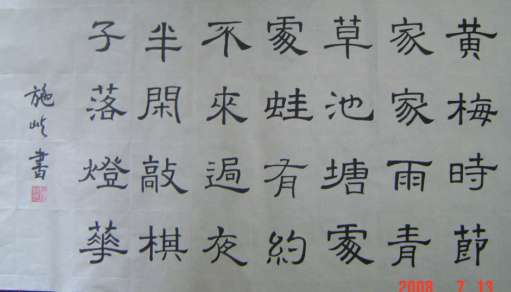 黄梅時節
家家雨青
草池塘處
處蛙有約
不來過夜
半閑敲棋
子落燈華
施 書
2008 7 13